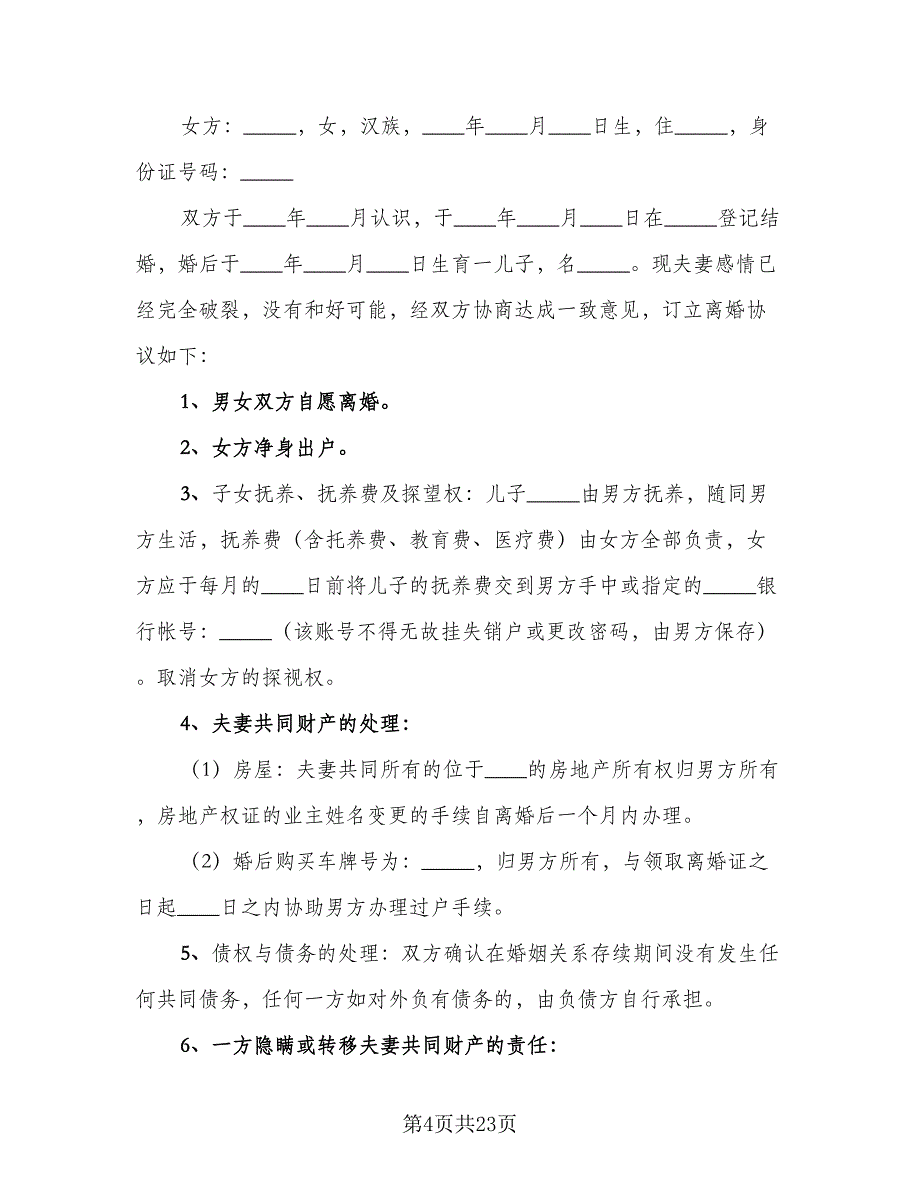 女方：_____，女，汉族，____年____月____日生，住_____，身
份证号码：_____
双方于____年____月认识，于____年____月____日在_____登记结
婚，婚后于____年____月____日生育一儿子，名_____。现夫妻感情已
经完全破裂，没有和好可能，经双方协商达成一致意见，订立离婚协
议如下：
1、男女双方自愿离婚。
2、女方净身出户。
3、子女抚养、抚养费及探望权：儿子_____由男方抚养，随同男
方生活，抚养费（含托养费、教育费、医疗费）由女方全部负责，女
方应于每月的____日前将儿子的抚养费交到男方手中或指定的_____银
行帐号：_____（该账号不得无故挂失销户或更改密码，由男方保存）
。取消女方的探视权。
4、夫妻共同财产的处理：
（1）房屋：夫妻共同所有的位于____的房地产所有权归男方所有
，房地产权证的业主姓名变更的手续自离婚后一个月内办理。
（2）婚后购买车牌号为：_____，归男方所有，与领取离婚证之
日起____日之内协助男方办理过户手续。
5、债权与债务的处理：双方确认在婚姻关系存续期间没有发生任
何共同债务，任何一方如对外负有债务的，由负债方自行承担。
6、一方隐瞒或转移夫妻共同财产的责任：
第4页共23页